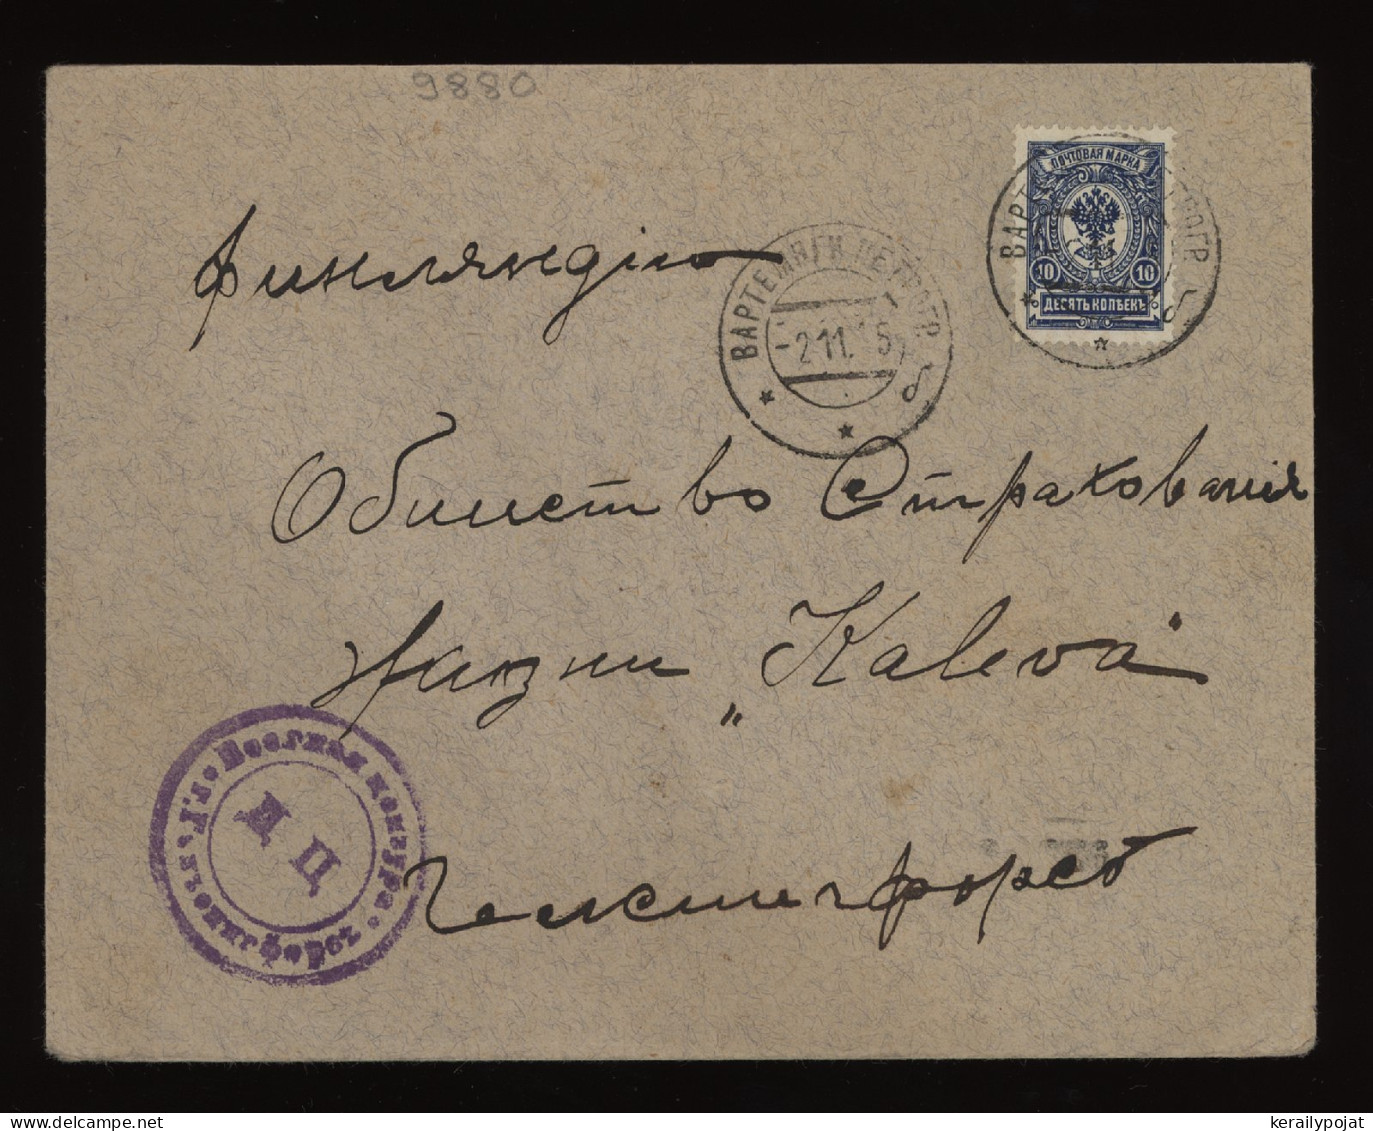 9880
ПОЧТОВАЯ МАРКА
10 10
ДЕСЯТЬ КОПѢЕКЪ
ВАРТЕМЯГИ ПЕТРОГР.
-2.11.15
Финляндію
Общество Страхованія
жизни „Kaleva"
Гельсингфорсъ
Военная цензура. г. Гельсингфорсъ
Д Ц
kerailypojat